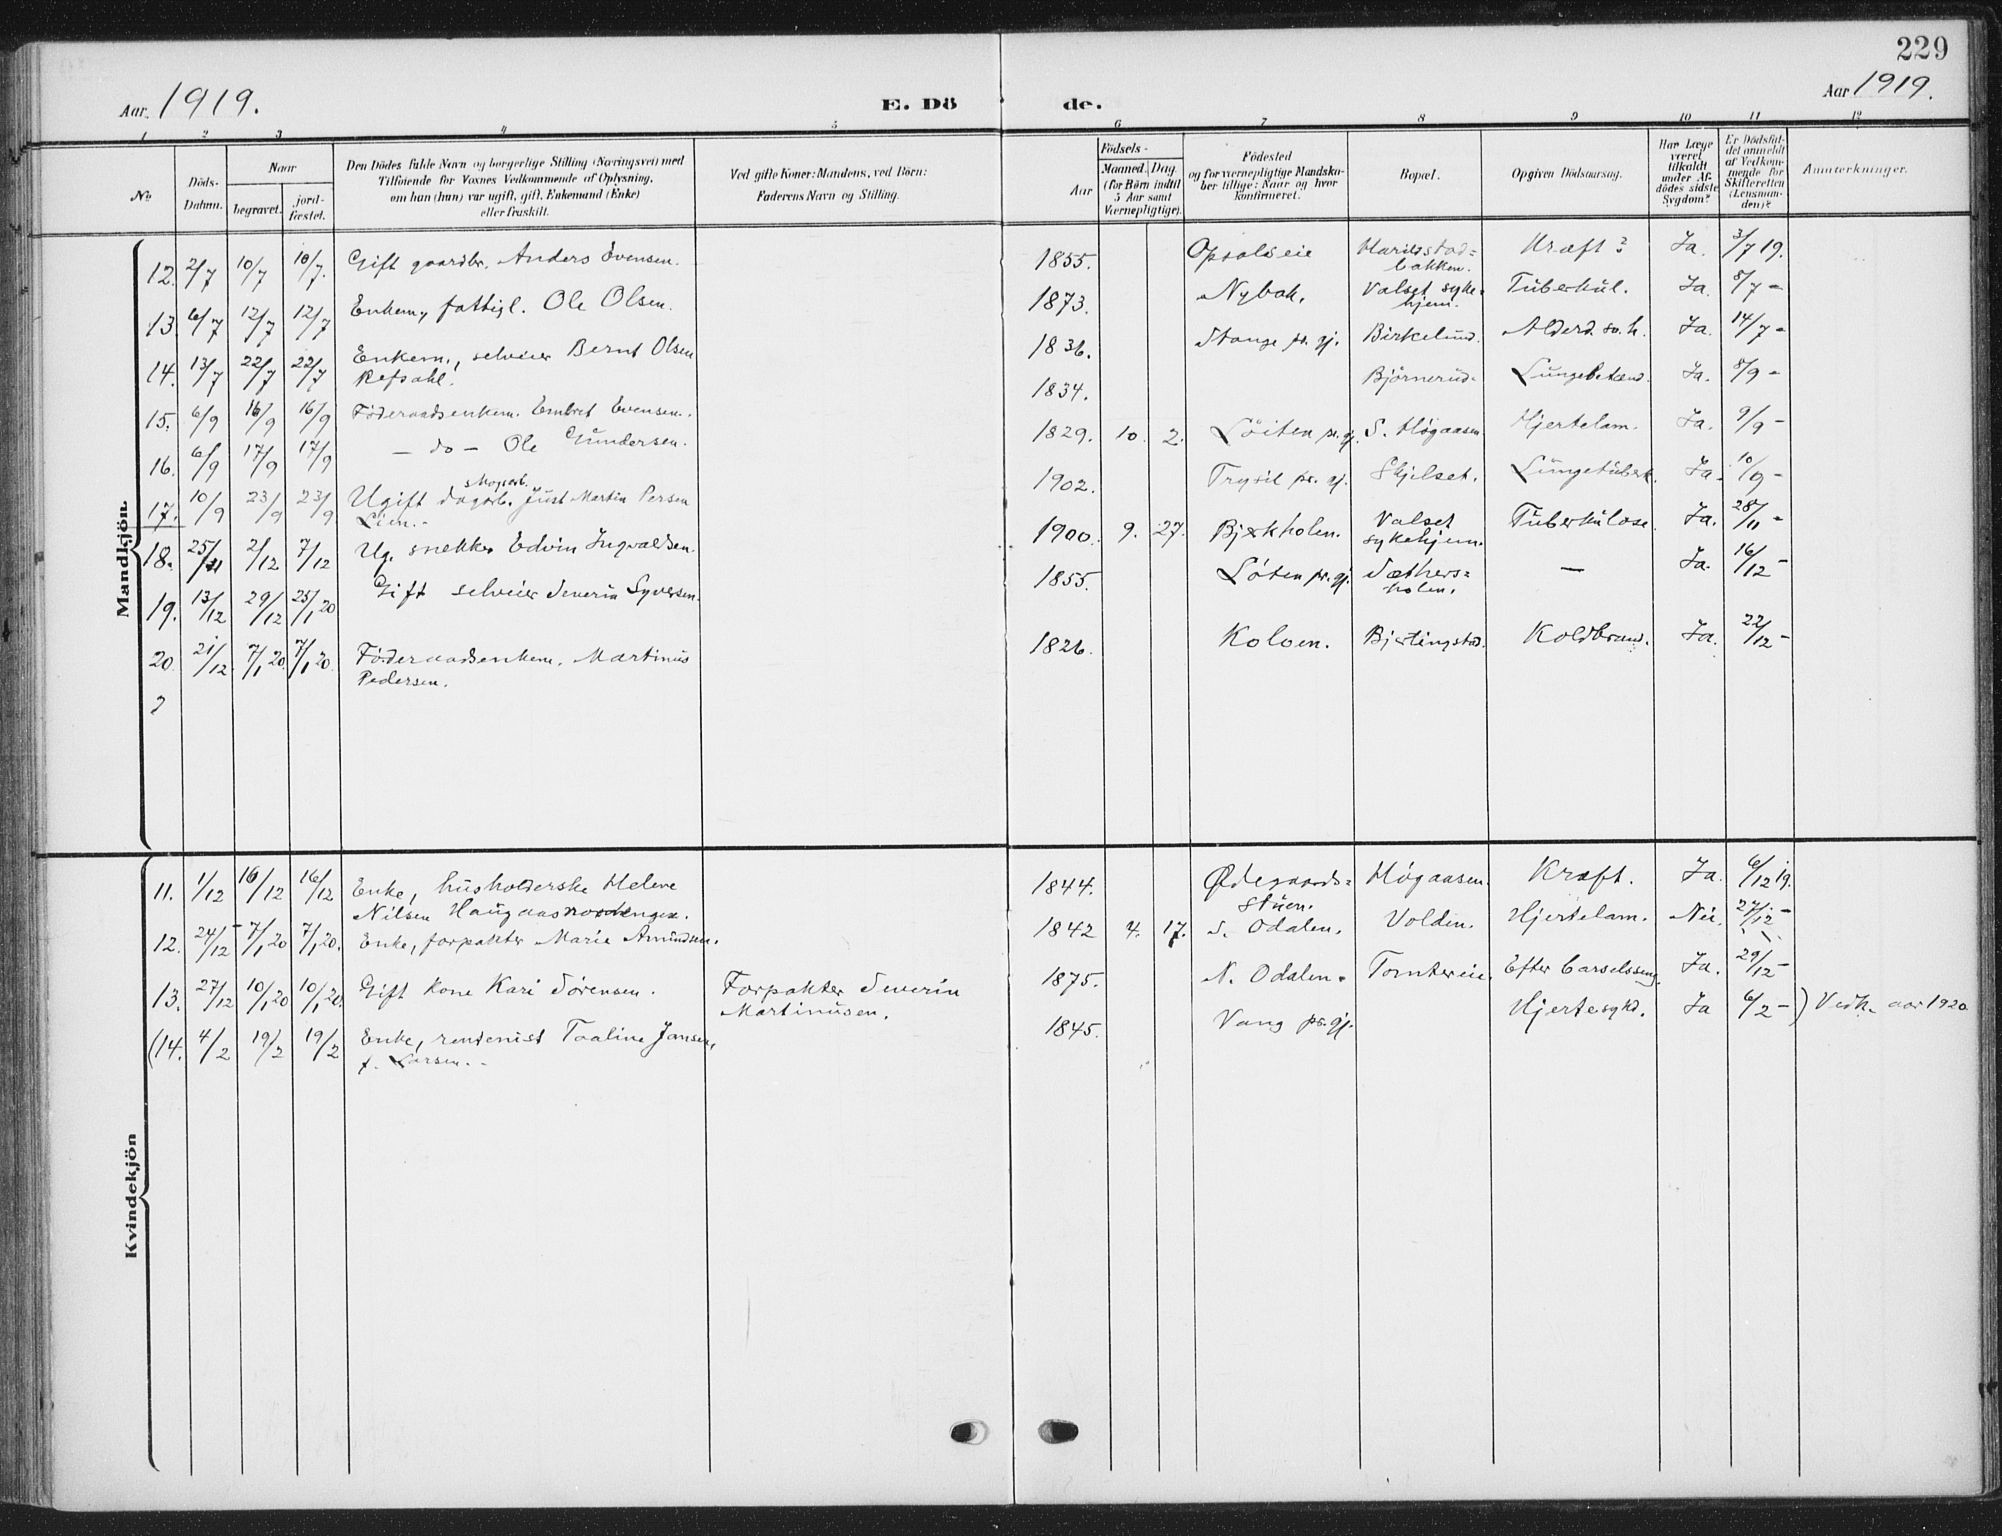 229
Aar. 1919.
E. Dö de.
Aar 1919.
1 2 3 4 5 6 7 8 9 10 11 12
No.
Döds-Datum.
Naar
begravet.
jord-fæstet.
Den Dödes fulde Navn og borgerlige Stilling (Næringsvei) med
Tilföiende for Voxnes Vedkommende af Oplysning,
om han (hun) var ugift, gift, Enkemand (Enke)
eller fraskilt.
Ved gifte Koner: Mandens, ved Börn:
Faderens Navn og Stilling.
Födsels-
Aar
Maaned. Dag.
(for Börn indtil
5 Aar samt
Værnepligtige).
Födested
og for værnepligtige Mandska-
ber tillige: Naar og hvor
konfirmeret.
Bopæl.
Opgiven Dödsaarsag.
Har Læge
været
tilkaldt
under Af-
dödes sidste
Sygdom?
Er Dödsfal-
det anmeldt
af Vedkom-
mende for
Skifteretten
(Lensman-
den)?
Anmerkninger.
Mandkjön.
12. 2/7 10/7 10/7. Gift gaardbr. Anders Evensen. 1855. Opsalseie Harildstad= bakken. Kræft? Ja. 3/7 19.
13. 6/7 12/7 12/7 Enkem, fattigl. Ole Olsen. 1873. Nybak. Valset syke= hjem. Tuberkul. Ja. 8/7 -
14. 13/7 22/7 22/7 Enkem., selveier Bernt Olsen 1836. Stange pr. gj. Birkelund. Alderd.sv.h. Ja. 14/7 -
Refsahl.
15. 6/9 16/9 16/9 Föderaadsenkem. Embret Evensen. 1834. Björnerud. Lungebetænd. Ja. 8/9 -
16. 6/9 17/9 17/9 - do - Ole Gundersen. 1829. 10. 2. Löiten pr. gj. S. Høgaasen Hjertelam. Ja. 9/9 -
17. 10/9 23/9 23/9 Ugift dagarb. Just Martin Persen 1902. Trysil pr. gj. Skjelset. Lungetuberk. Ja. 10/9 -
Lien. -
18. 25/11 2/12 7/12 Ug. snekker Edvin Ingvaldsen. 1900. 9. 27. Bjerkholen. Valset sykehjem. Tuberkulose. Ja. 28/11 -
19. 13/12 29/12 25/1 20 Gift selveier Severin Syversen. 1855. Löten pr. gj. Sæthers= holen. — Ja. 16/12 -
20. 21/12 7/1 20. 7/1 20. Föderaadsenkem. Martinus 1826. Koloen. Bjertingstad. Koldbrand. Ja. 22/12 -
Pedersen.
2
Kvindekjön
11. 1/12 16/12 16/12 Enke, husholderske Helene 1844. Ødegaards= stuen. Høgaasen. Kræft. Ja. 6/12 19.
Nilsen Haugaasnordengen.
12. 24/12 7/1 20 7/1 20. Enke, forpakter Marie Amundsen. 1842 4. 17. S. Odalen. Volden. Hjertelam. Nei. 27/12 -
13. 27/12 10/1 20 10/1 20. Gift kone Kari Sörensen. Forpakter Severin Martinusen. 1875. N. Odalen. Tomtereie. Efter barselsseng. Ja. 29/12 -
(14. 4/2 19/2 19/2 Enke, rentenist Taaline Jansen, 1845. Vang pr. gj. Hjertesykd. Ja 6/2 - ) Vedk. aar 1920
f. Larsen. -